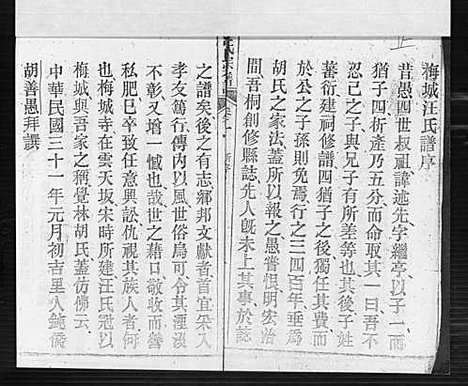 梅城汪氏譜序
昔愚四世叔祖諱述先字繼亭以子一而
猶子四析產乃五分而四其一曰吾不
忍己之子與兄子有所差等也厥後子姓
蕃衍建祠修譜四猶子之後獨任其費而
於公之子孫則免焉行之三四百年垂爲
胡氏之家法蓋所以報之愚嘗恨明宏治
間吾桐創修縣誌先人旣未上其事於誌
之譜矣後之有志鄉邦文獻者首宜采入
孝友篤行傳內以風世俗烏可令其湮沒
不彰又增一憾也哉世之藉口敬收而營
私肥己卒致任意興訟仇視其族人者何
梅城山寺在雲天坂宋時建汪氏冠以
梅城與吾家之稱覺林胡氏蓋仿佛云
中華民國三十一年元月初吉里人鈍儕
胡善愚拜譔